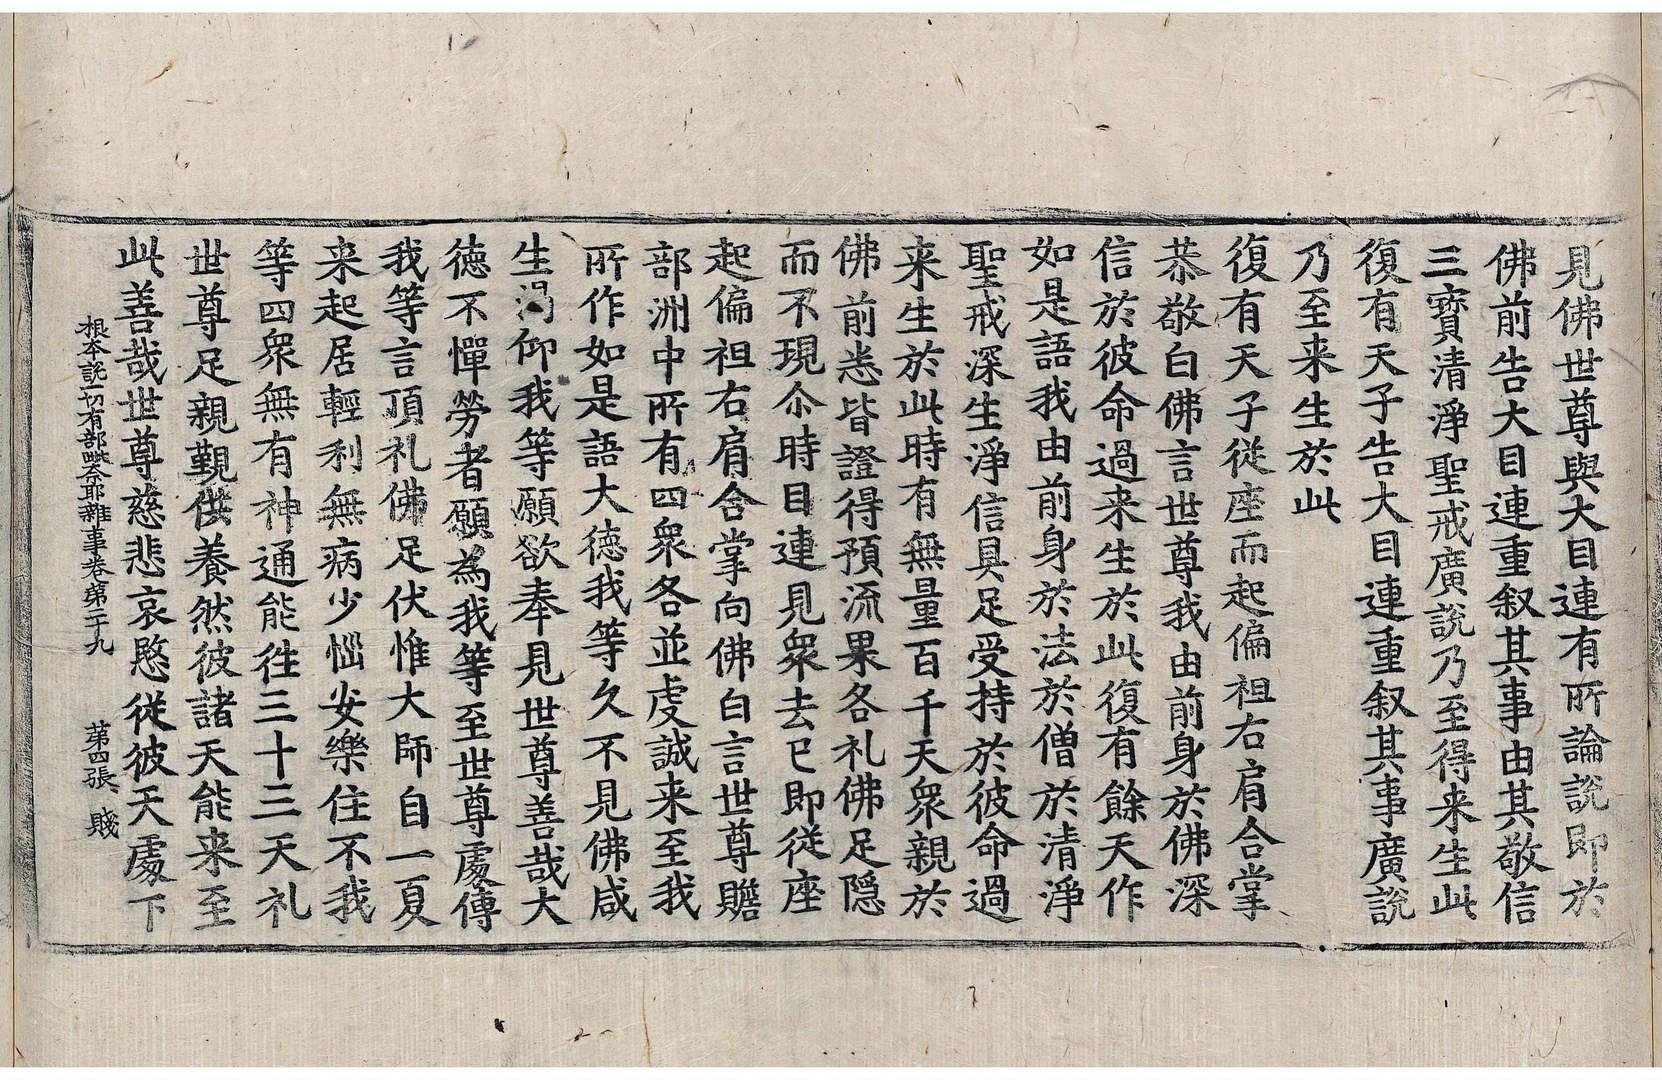 見佛世尊與大目連有所論說即於
佛前告大目連重叙其事由其敬信
三寶清淨聖戒廣說乃至得来生此
復有天子告大目連重叙其事廣說
乃至来生於此
復有天子從座而起偏袒右肩合掌
恭敬白佛言世尊我由前身於佛深
信於彼命過来生於此復有餘天作
如是語我由前身於法於僧於清淨
聖戒深生淨信具足受持於彼命過
来生於此時有無量百千天衆親於
佛前悉皆證得預流果各礼佛足隐
而不現尒時目連見衆去已即從座
起偏袒右肩合掌向佛白言世尊贍
部洲中所有四衆各並虔誠来至我
所作如是語大德我等久不見佛咸
生渴仰我等願欲奉見世尊善哉大
德不憚勞者願為我等至世尊處傳
我等言頂礼佛足伏惟大師自一夏
来起居輕利無病少惱安樂住不我
等四衆無有神通能往三十三天礼
世尊足親覲供養然彼諸天能来至
此善哉世尊慈悲哀愍從彼天處下
根本說一切有部毗奈耶雜事卷第二十九 第四張 賤